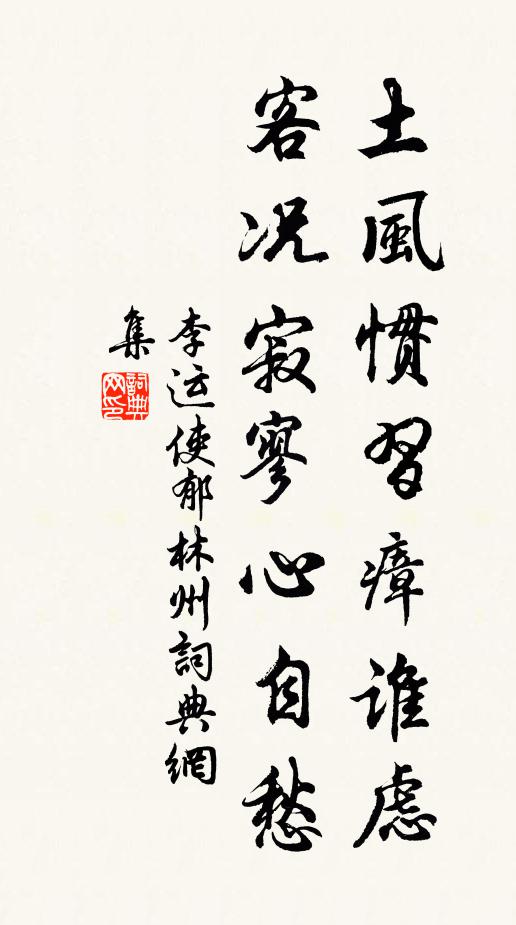 土風慣習瘴誰慮
客况寂寥心自愁
李运使郁林州詞典網
集
詞典
网印